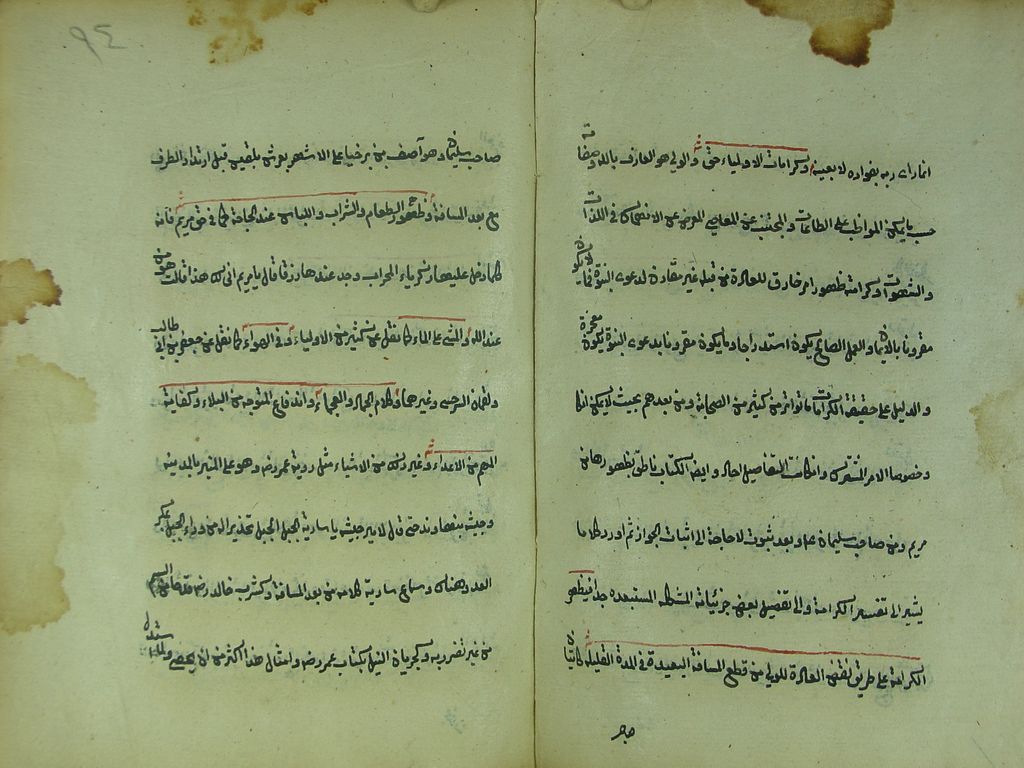 انما راى ربه بفؤاده لا بعينه وكرامات الاولياء حق والولي هو العارف بالله وصفاته
حسب ما يمكن المواظب على الطاعات والمجتنب عن المعاصي المعرض عن الانهماك في اللذات
والشهوات وكرامته ظهور امر خارق للعادة من قبله غير مقارن لدعوى النبوة فما لا يكون
مقرونا بالايمان والعمل الصالح يكون استدراجا وما يكون مقرونا بدعوى النبوة يكون معجزة
والدليل على حقيقة الكرامات ما تواتر من كثير من الصحابة ومن بعدهم بحيث لا يمكن انكا
وخصوصا الامر المشترك وان كانت التفاصيل احادا وايضا الكتاب ناطق بظهورها من
مريم ومن صاحب سليمان عم وبعد ثبوت لا حاجة الى اثبات الجواز ثم اورد كلاما
يشير الى تفسير الكرامة والى تفصيل بعض جزئياته المستبعده جدا فيظهر
الكرامة على طريق نقض العادة للولي من قطع المسافة البعيدة في المدة القليلة كاتيان
صا
٩٤
صاحب سليمان وهو آصف بن برخيا على الاشهر بعرش بلقيس قبل ارتداد الطرف
مع بعد المسافة وظهور الطعام والشراب واللباس عند الحاجة كما في حق مريم فانه
كلما دخل عليها زكرياء المحراب وجد عندها رزقا قال يا مريم انى لك هذا قالت هو من
عند الله والمشي على الماء كما نقل عن كثير من الاولياء وفي الهواء كما نقل عن جعفر بن ابي طالب
ولقمان السرخسي وغيرهما وكلام الجماد والعجماء واندفاع المتوجه من البلاء وكفاية
المهم من الاعداء وغير ذلك من الاشياء مثل رؤية عمر رض وهو على المنبر بالمدينة
وجيشه بنهاوند حتى قال لامير جيشه يا سارية الجبل الجبل تحذيرا له من وراء الجبل بمكر
العدو هناك وسماع سارية كلامه من بعد المسافة وكشرب خالد رض السم
من غير تضرر به وكجريان النيل بكتاب عمر رض وامثال هذا اكثر من ان يحصى ولما استدل